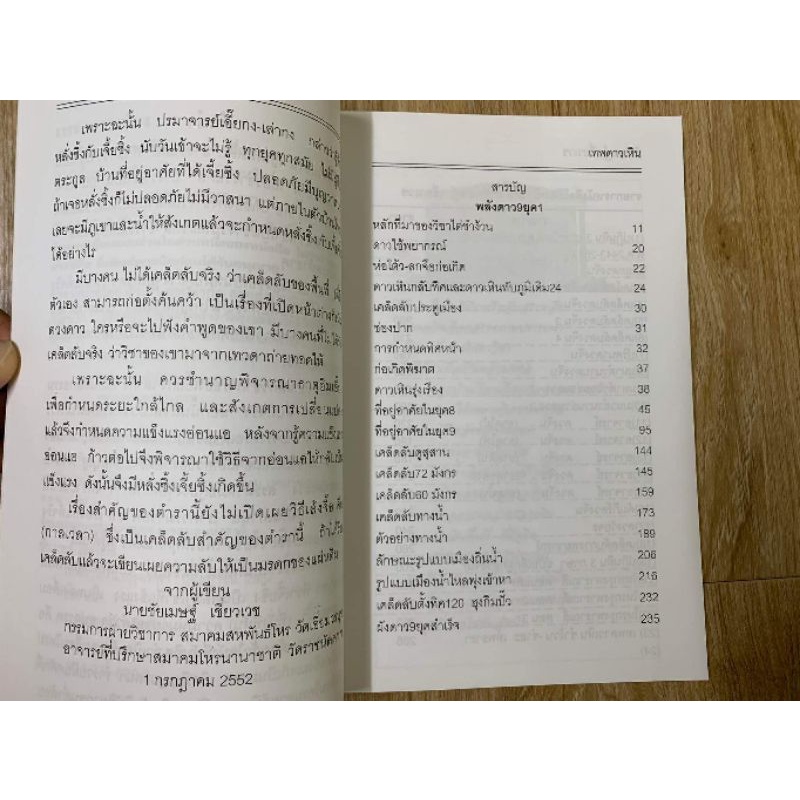 เพราะฉะนั้น ปรมาจารย์เอี๊ยกง-เล่ากง
หลั่งซิ้งกับเจี้ยซิ้ง นับวันเข้าจะไม่รู้ ทุกยุคทุกสมัย
ตระกูล บ้านที่อยู่อาศัยที่ได้เจี้ยซิ้ง ปลอดภัยมีบุญวาสนา
ถ้าเจอหลั่งซิ้งก็ไม่ปลอดภัยไม่มีวาสนา แต่ภายในตัวบ้าน
เลยจะมีภูเขาและน้ำให้สังเกตแล้วจะกำหนดหลั่งซิ้ง กับเจี้ยซิ้ง
ได้อย่างไร
มีบางคน ไม่ได้เคล็ดลับจริง ว่าเคล็ดลับของพื้นที่
ตัวเอง สามารถก่อตั้งค้นคว้า เป็นเรื่องที่เปิดหน้าต่าง
ดวงดาว ใครหรือจะไปฟังคำพูดของเขา มีบางคนที่ไม่ได้
เคล็ดลับจริง ว่าวิชาของเขามาจากเทวดาถ่ายทอดให้
เพราะฉะนั้น ควรชำนาญพิจารณาธาตุ
เพื่อกำหนดระยะใกล้ไกล และสังเกตการเปลี่ยนแปลง
แล้วจึงกำหนดความแข็งแรงอ่อนแอ หลังจากรู้ความแข็งแรง
อ่อนแอ ก้าวต่อไปจึงพิจารณาใช้วิธีจากอ่อนแอให้กลับเป็น
แข็งแรง ดังนั้นจึงมีหลั่งซิ้งเจี้ยซิ้งเกิดขึ้น
เรื่องสำคัญของตำรานี้ยังไม่เปิดเผยวิธีเล่งจิ้ง
(กาลเวลา) ซึ่งเป็นเคล็ดลับสำคัญของตำรานี้ ถ้าได้รับ
เคล็ดลับแล้วจะเขียนเผยความลับให้เป็นมรดกของแผ่นดิน
จากผู้เขียน
นายชัยเมษฐ์ เชี่ยวเวช
กรรมการฝ่ายวิชาการ สมาคมสหพันธ์โหร วัด
อาจารย์ที่ปรึกษาสมาคมโหรนานาชาติ วัดราช
1 กรกฎาคม 2552
เทพดาวเหิน
สารบัญ
พลังดาว9ยุค1
หลักที่มาของวิชาไต่ซำง้วน 11
ดาวใช้พยากรณ์ 20
ห่อโต้ว-ลกจือก่อเกิด 22
ดาวเหินกลับทิศและดาวเหินทับภูมิเดิม24 24
เคล็ดลับประตูเมือง 30
ช่องปาก 31
การกำหนดทิศหน้า 32
ก่อเกิดพิฆาต 37
ดาวเหินรุ่งเรือง 38
ที่อยู่อาศัยในยุค8 45
ที่อยู่อาศัยในยุค9 95
เคล็ดลับดูสุสาน 144
เคล็ดลับ72 มังกร 145
เคล็ดลับ60 มังกร 159
เคล็ดลับทางน้ำ 173
ตัวอย่างทางน้ำ 189
ลักษณะรูปแบบเมืองถิ่นน้ำ 206
รูปแบบเมืองน้ำไหลพุ่งเข้าหา 216
เคล็ดลับตั้งทิศ120 ฮุงกิมปั๊ว 232
ผังดาว9ยุคสำเร็จ 235